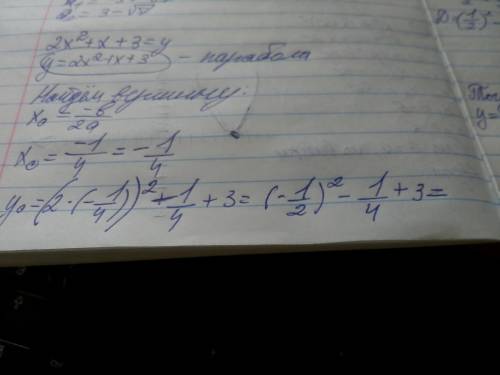 = 3 - √
2x² + x + 3 = y
y = 2x² + x + 3 - парабола
Найдём вершину:
x₀ = -b/2a
x₀ = -1/4 = -1/4
y₀ = (2·(-1/4))² + -1/4 + 3 = (-1/2)² - 1/4 + 3 =
D·(1/3)
y =